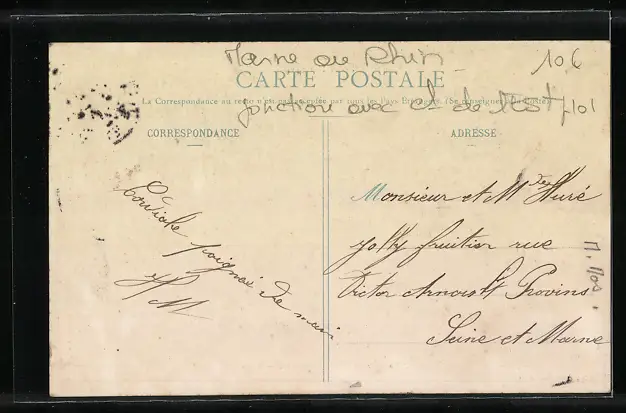 Marne au Rhin
106
CARTE POSTALE
La Correspondance au recto n'est pas acceptée par tous les Pays Etrangers. (Se renseigner à la Poste)
jonction avec Cl de l'Est
CORRESPONDANCE
ADRESSE
Cordiale poignée de main
HM
Monsieur et Mme Huré
Jolly fruitier rue
Victor Arnoult Provins
Seine et Marne